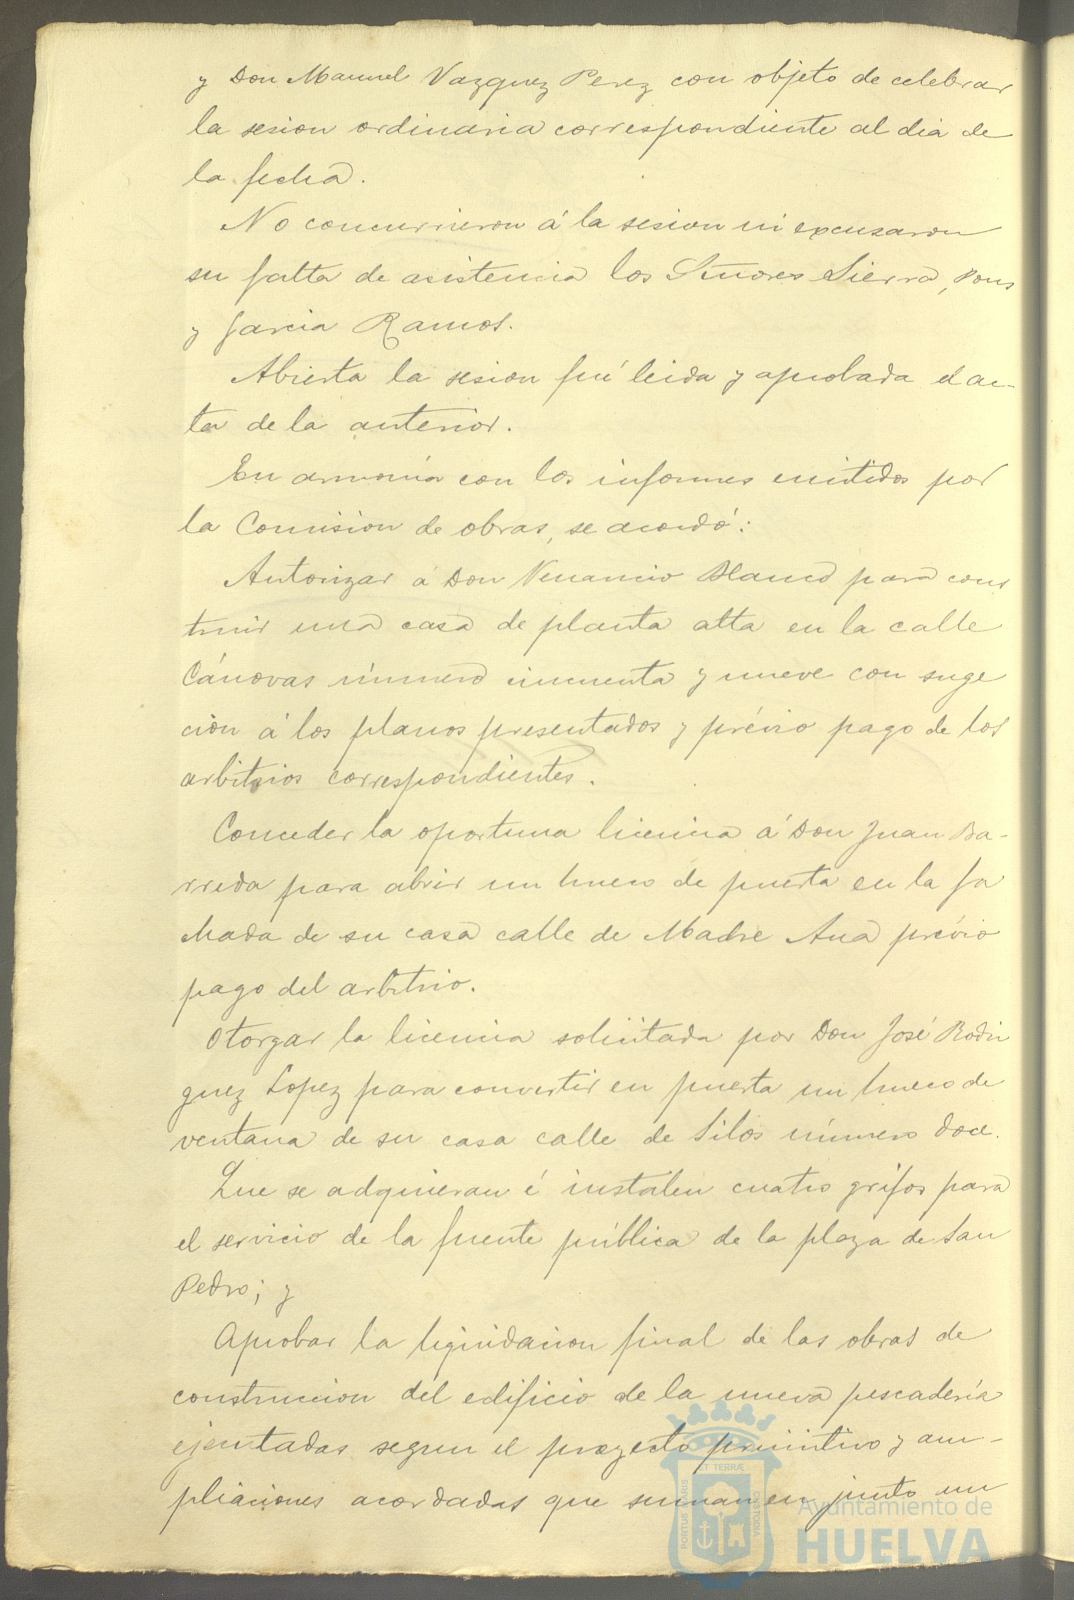 y Don Manuel Vazquez Perez con objeto de celebrar
la sesion ordinaria correspondiente al dia de
la fecha.
No concurrieron á la sesion ni excusaron
su falta de asistencia los Señores Sierra, Pons
y Garcia Ramos.
Abierta la sesion fué leida y aprobada el ac-
ta de la anterior.
En armonía con los informes emitidos por
la Comision de obras, se acordó:
Autorizar á Don Venancio Blanco para cons
truir una casa de planta alta en la calle
Cánovas número cincuenta y nueve con suge
ción á los planos presentados y prévio pago de los
arbitrios correspondientes.
Conceder la oportuna licencia á Don Juan Ba-
rreda para abrir un hueco de puerta en la fa
chada de su casa calle de Madre Ana prévio
pago del arbitrio.
Otorgar la licencia solicitada por Don José Rodri
guez Lopez para convertir en puerta un hueco de
ventana de su casa calle de Silos número doce.
Que se adquieran é instalen cuatro grifos para
el servicio de la fuente pública de la plaza de San
Pedro; y
Aprobar la liquidacion final de las obras de
construccion del edificio de la nueva pescadería
ejecutadas segun el proyecto primitivo y am-
pliaciones acordadas que suman en junto un
Ayuntamiento de
HUELVA
PORTUS MARIS
ET TERRÆ
CUSTODIA